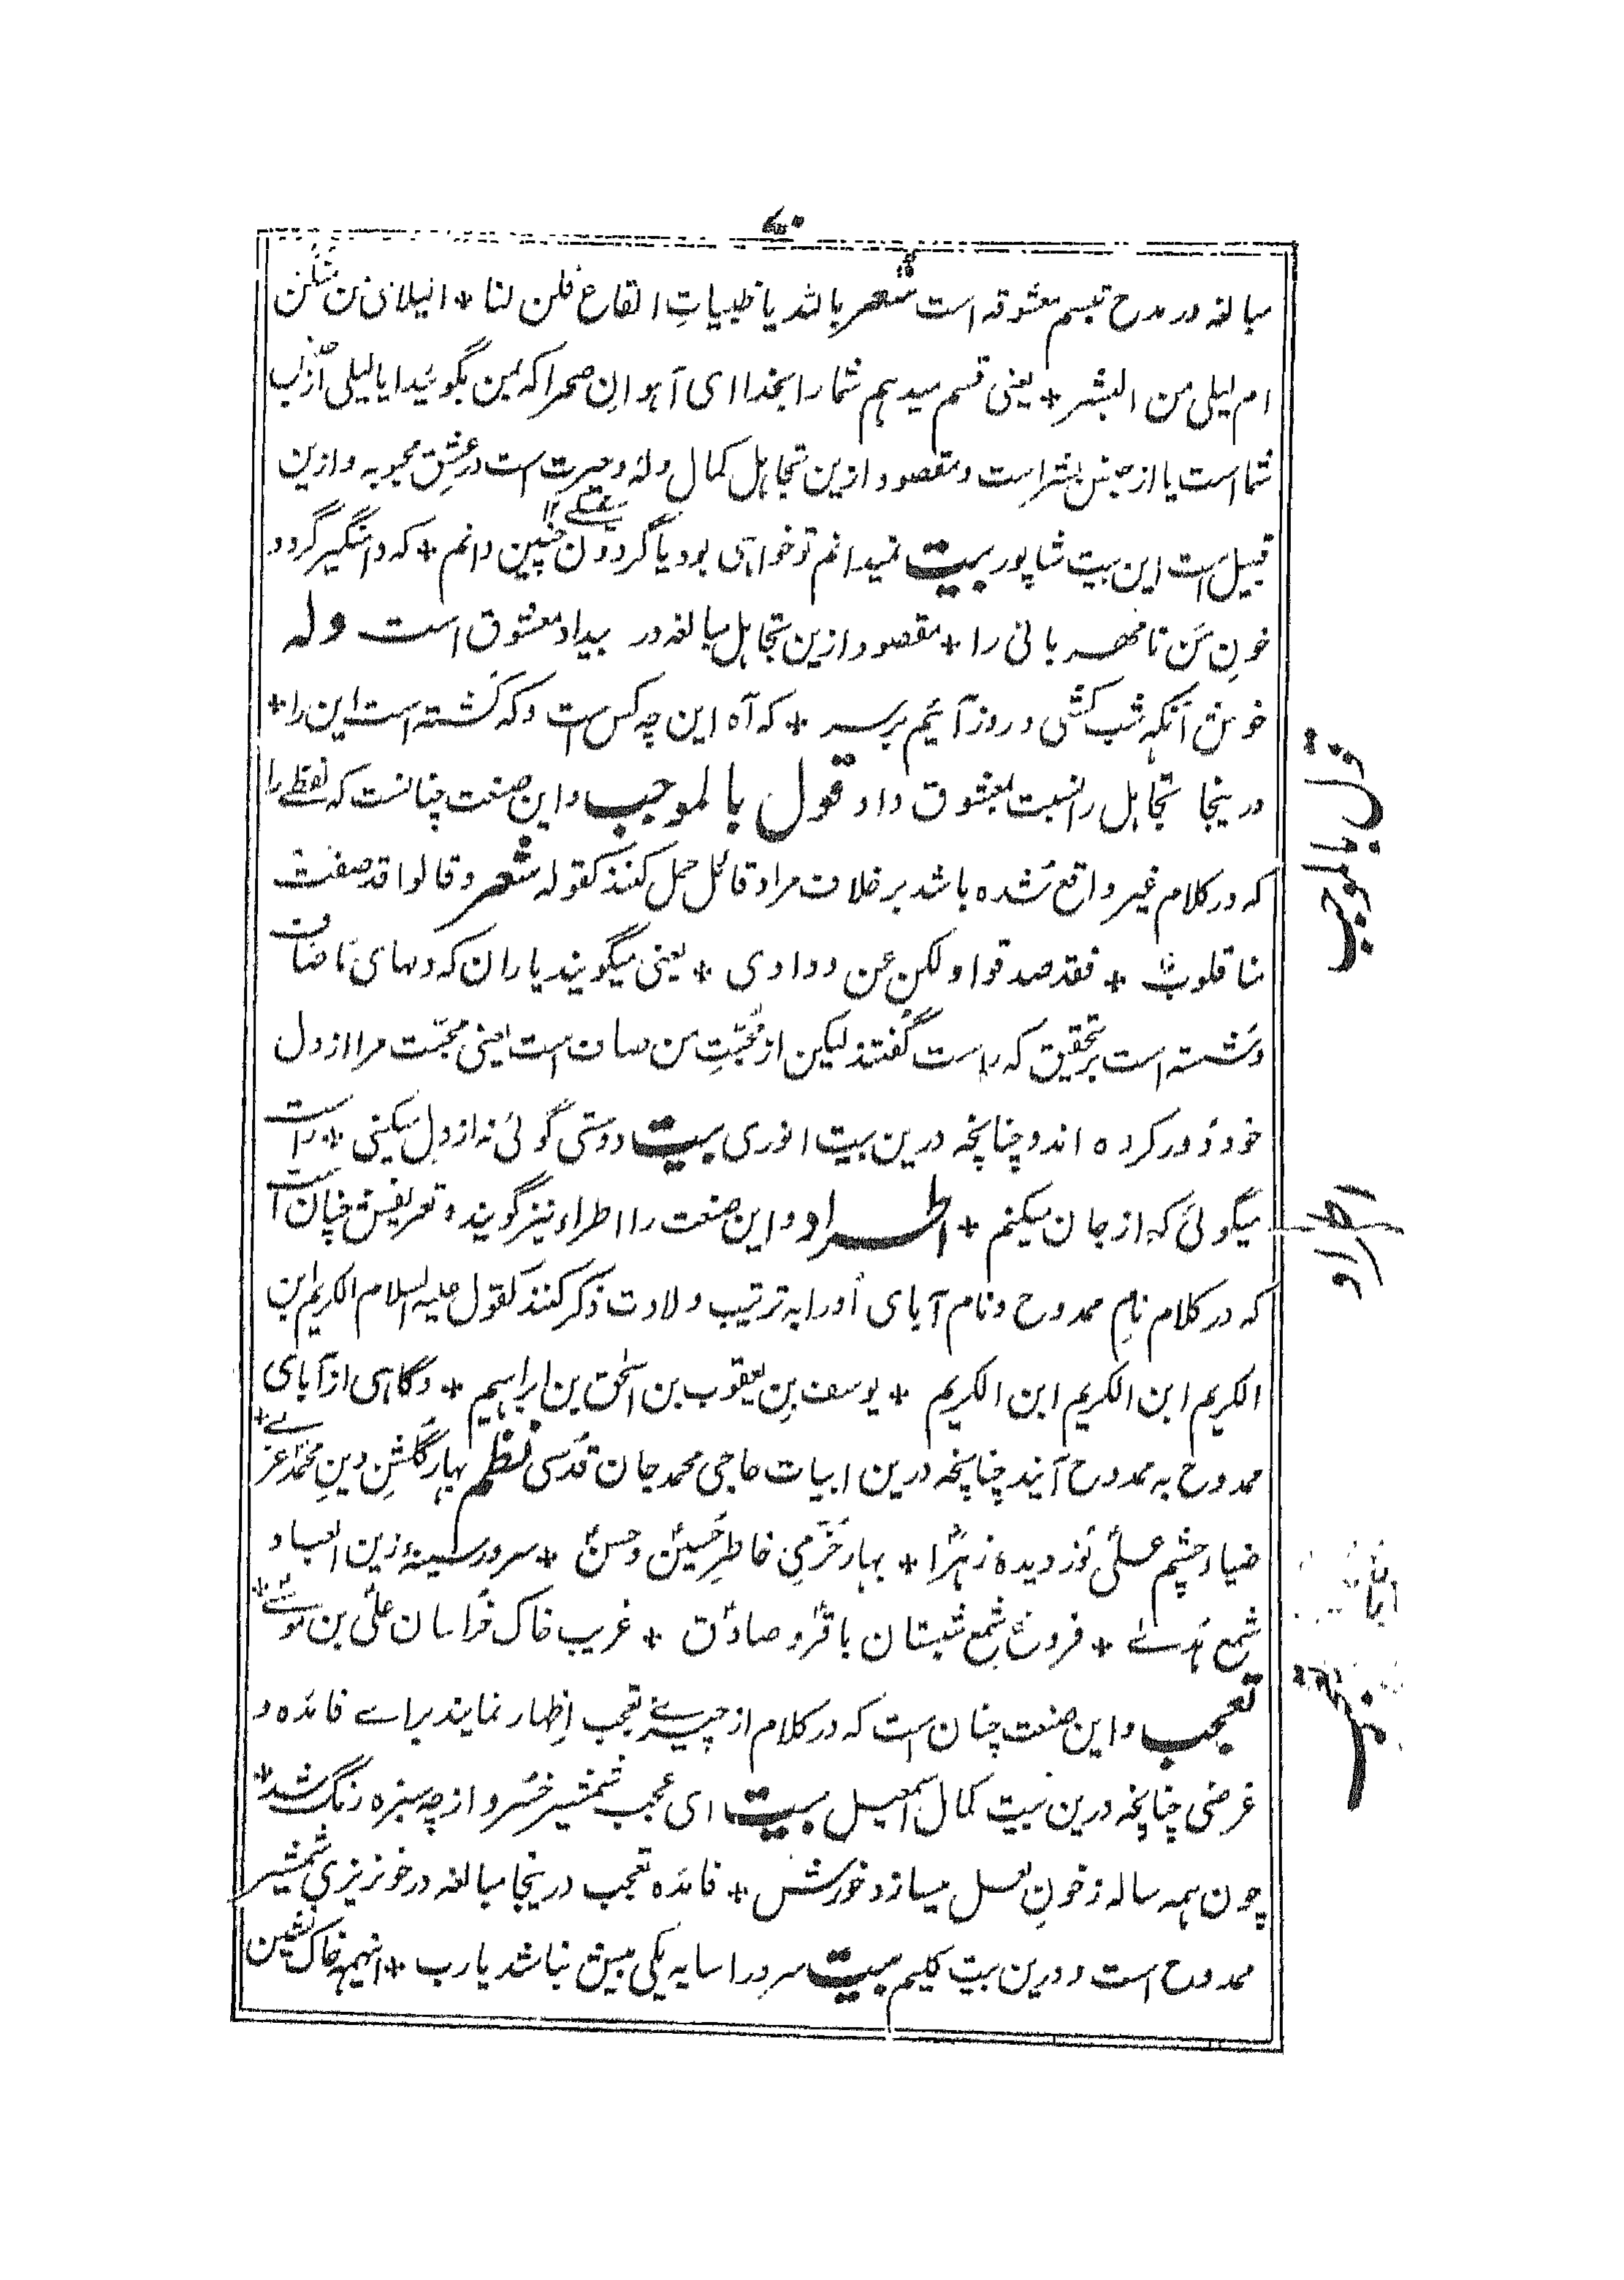 ۷۰
مبالغه در مدح تبسم معشوقه است شعر بالله یا ظبیات القاع قلن لنا * الیلای منکن
ام لیلی من البشر * یعنی قسم میدهم شما را بخدا ای آهوان صحرا که بمن بگوئید ایا لیلی از جنس
شما است یا از جنس بشر است و مقصود ازین تجاهل کمال وله و حیرت است در عشق محبوبه و ازین
قبیل است این بیت شاپور بیت نمیدانم تو خواهی بود یا گردون چنین دانم * که دامنگیر گردد
خونِ من نامهربانی را * مقصود ازین تجاهل مبالغه در بیداد معشوق است وله
خوش آنکه شب کشی و روز آئیم بر سر * که آه این چه کس است و که کشته است این را *
درینجا تجاهل را نسبت بمعشوق داد قول بالموجب و این صنعت چنانست که لفظے را
که در کلام غیر واقع شده باشد بر خلاف مراد قائل حمل کنند کقوله شعر و قالوا قد صفت
منا قلوبٌ * فقد صدقوا و لکن عن ودادی * یعنی میگویند یاران که دلهای ما صاف
و شسته است بر تحقیق که راست گفتند لیکن از محبّتِ من صاف است یعنی محبّت مرا از دل
خود دور کرده اند و چنانچه درین بیت انوری بیت دوستی گوئی نه از دل میکنی * راست
میگوئی که از جان میکنم * اطراد و این صنعت را اطراد نیز گویند و تعریفش چنان است
که در کلام نام ممدوح و نام آبای اُو را به ترتیب ولادت ذکر کنند کقول علیه السلام الکریم ابن
الکریم ابن الکریم ابن الکریم * یوسف بن یعقوب بن اسحٰق بن ابراهیم * و گاهی از آبای
ممدوح به ممدوح آیند چنانچه درین ابیات حاجی محمد جان قدسی نظم بهار گلشنِ دینِ محمدؐ عربے *
ضیاء چشم علیؑ نور دیده زهراؑ * بهار خرّمی خاطرِ حسینؑ و حسنؑ * سرور سینهٔ زین العباد
شمع هُدےٰ * فروغ شمع شبستان باقرؑ و صادقؑ * غریب خاک خراسان علیؑ بن موسےٰ *
تعجب و این صنعت چنان است که در کلام از چیزے تعجب اظهار نمایند براے فائده و
غرضی چنانچه درین بیت کمال اسمعیل بیت ای عجب شمشیر خسرو از چه سبزه رنگ شد *
چون همه ساله ز خونِ لعل میسازد خورش * فائده تعجب درینجا مبالغه در خونریزی شمشیر
ممدوح است و درین بیت کلیم بیت سرو را سایه یکی بیش نباشد یارب * اینهمه خاک نشین
قول بالموجب
اطراد